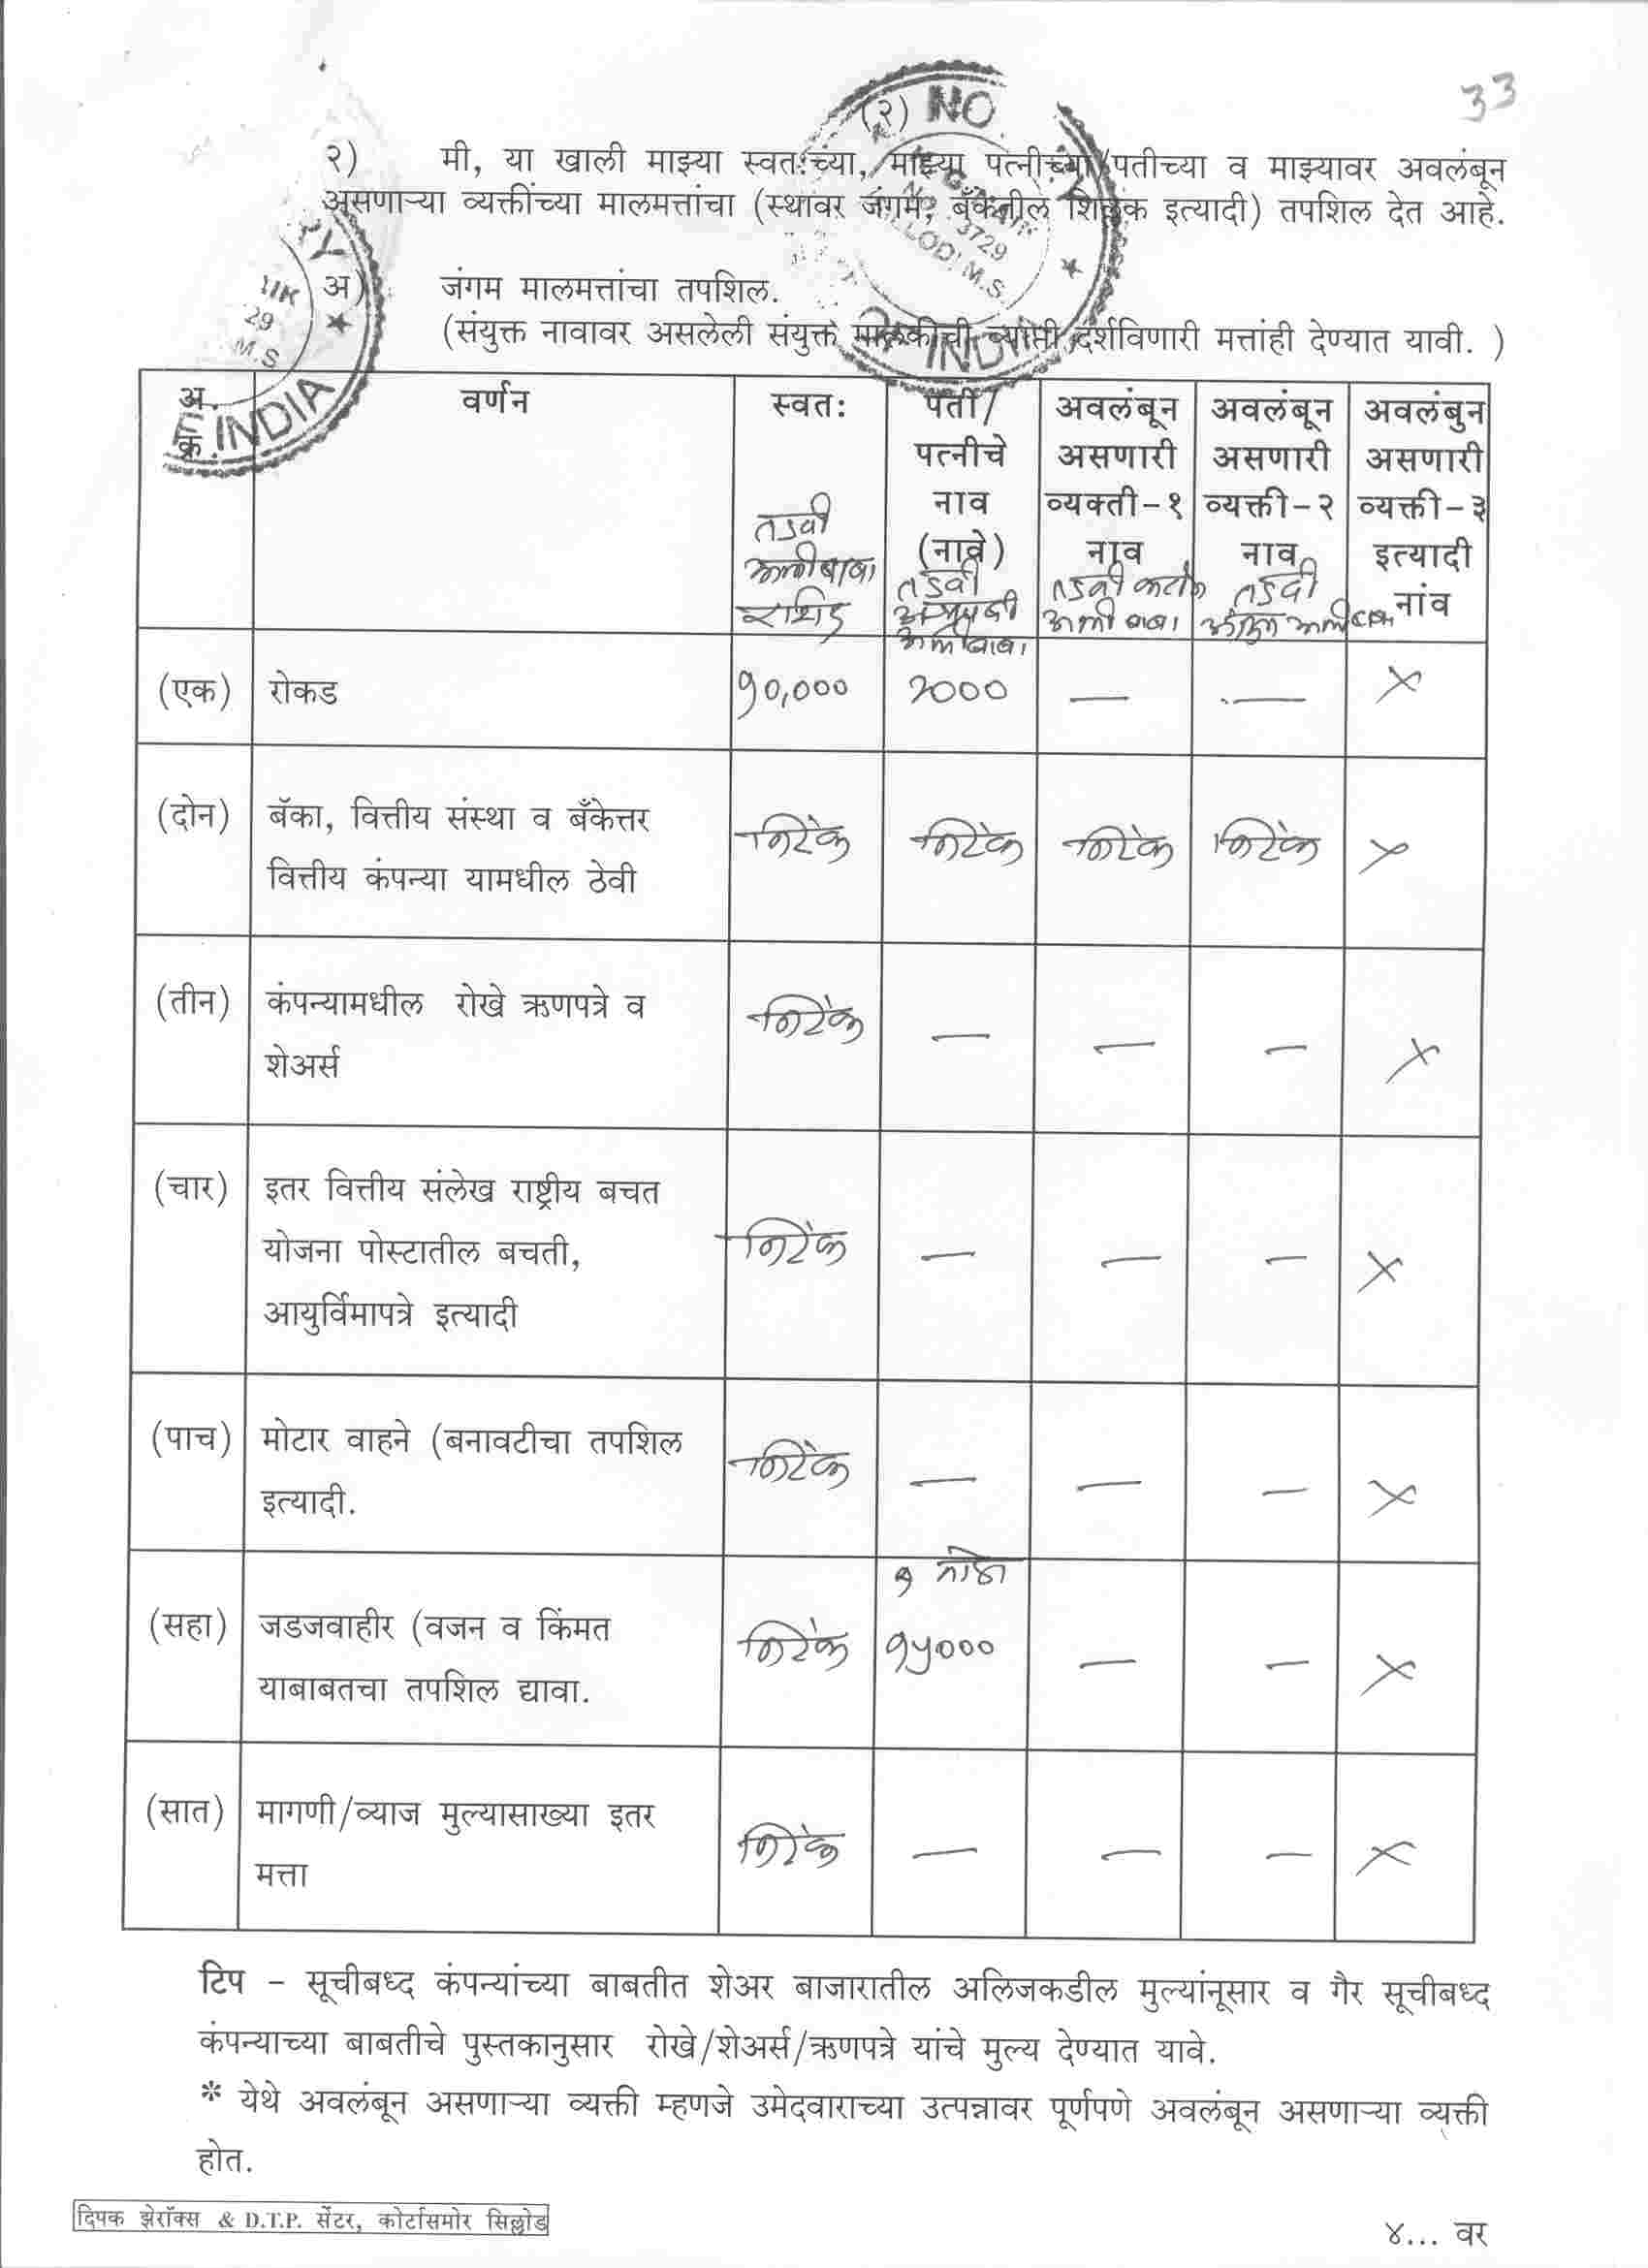 33
(२) NO
२) मी, या खाली माझ्या स्वतःच्या, माझ्या पत्नीच्या/पतीच्या व माझ्यावर अवलंबून
असणाऱ्या व्यक्तींच्या मालमत्तांचा (स्थावर जंगम, बँकेतील शिल्लक इत्यादी) तपशिल देत आहे.
3729
M.S.
INDIA
अ) जंगम मालमत्तांचा तपशिल.
29
M.S
INDIA
(संयुक्त नावावर असलेली संयुक्त मालकीची व्याप्ती दर्शविणारी मत्तांही देण्यात यावी. )
अ. क्र. वर्णन स्वतः पती/ अवलंबून अवलंबून अवलंबुन
पत्नीचे असणारी असणारी असणारी
नाव व्यक्ती-१ व्यक्ती-२ व्यक्ती-३
(नावे) नाव नाव इत्यादी
नांव
तडवी अलीबाबा रशिद तडवी अलीबाबा तडवी अलीबाबा तडवी
(एक) रोकड १०,००० २००० — — ×
(दोन) बॅका, वित्तीय संस्था व बँकेत्तर निरंक निरंक निरंक निरंक ×
वित्तीय कंपन्या यामधील ठेवी
(तीन) कंपन्यामधील रोखे ऋणपत्रे व निरंक — — — ×
शेअर्स
(चार) इतर वित्तीय संलेख राष्ट्रीय बचत
योजना पोस्टातील बचती, निरंक — — — ×
आयुर्विमापत्रे इत्यादी
(पाच) मोटार वाहने (बनावटीचा तपशिल निरंक — — — ×
इत्यादी.
(सहा) जडजवाहीर (वजन व किंमत निरंक १ १५००० — — ×
याबाबतचा तपशिल द्यावा.
(सात) मागणी/व्याज मुल्यासाख्या इतर निरंक — — — ×
मत्ता
टिप - सूचीबध्द कंपन्यांच्या बाबतीत शेअर बाजारातील अलिजकडील मुल्यांनूसार व गैर सूचीबध्द
कंपन्याच्या बाबतीचे पुस्तकानुसार रोखे/शेअर्स/ऋणपत्रे यांचे मुल्य देण्यात यावे.
* येथे अवलंबून असणाऱ्या व्यक्ती म्हणजे उमेदवाराच्या उत्पन्नावर पूर्णपणे अवलंबून असणाऱ्या व्यक्ती
होत.
दिपक झेरॉक्स & D.T.P. सेंटर, कोर्टासमोर सिल्लोड
४... वर